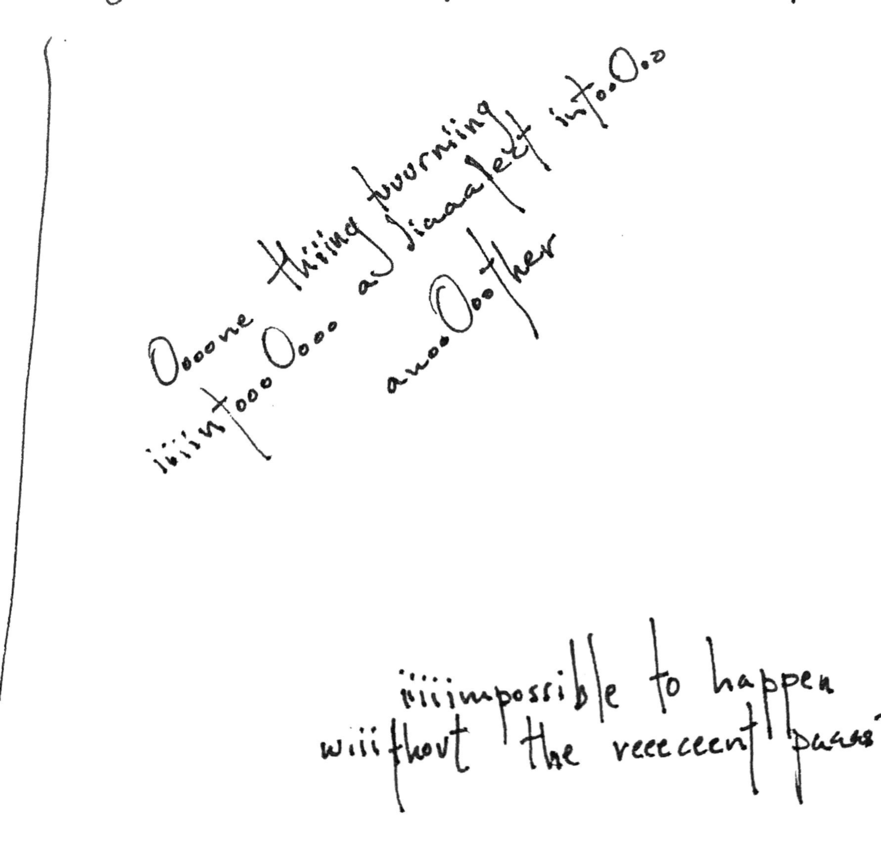 OooOone thiiing tuuurniiing
iiiintoooOooo a diaaalect intooOoo
anooOoother
iiiiimpossible to happen
wiiithout the reeeceent paaas